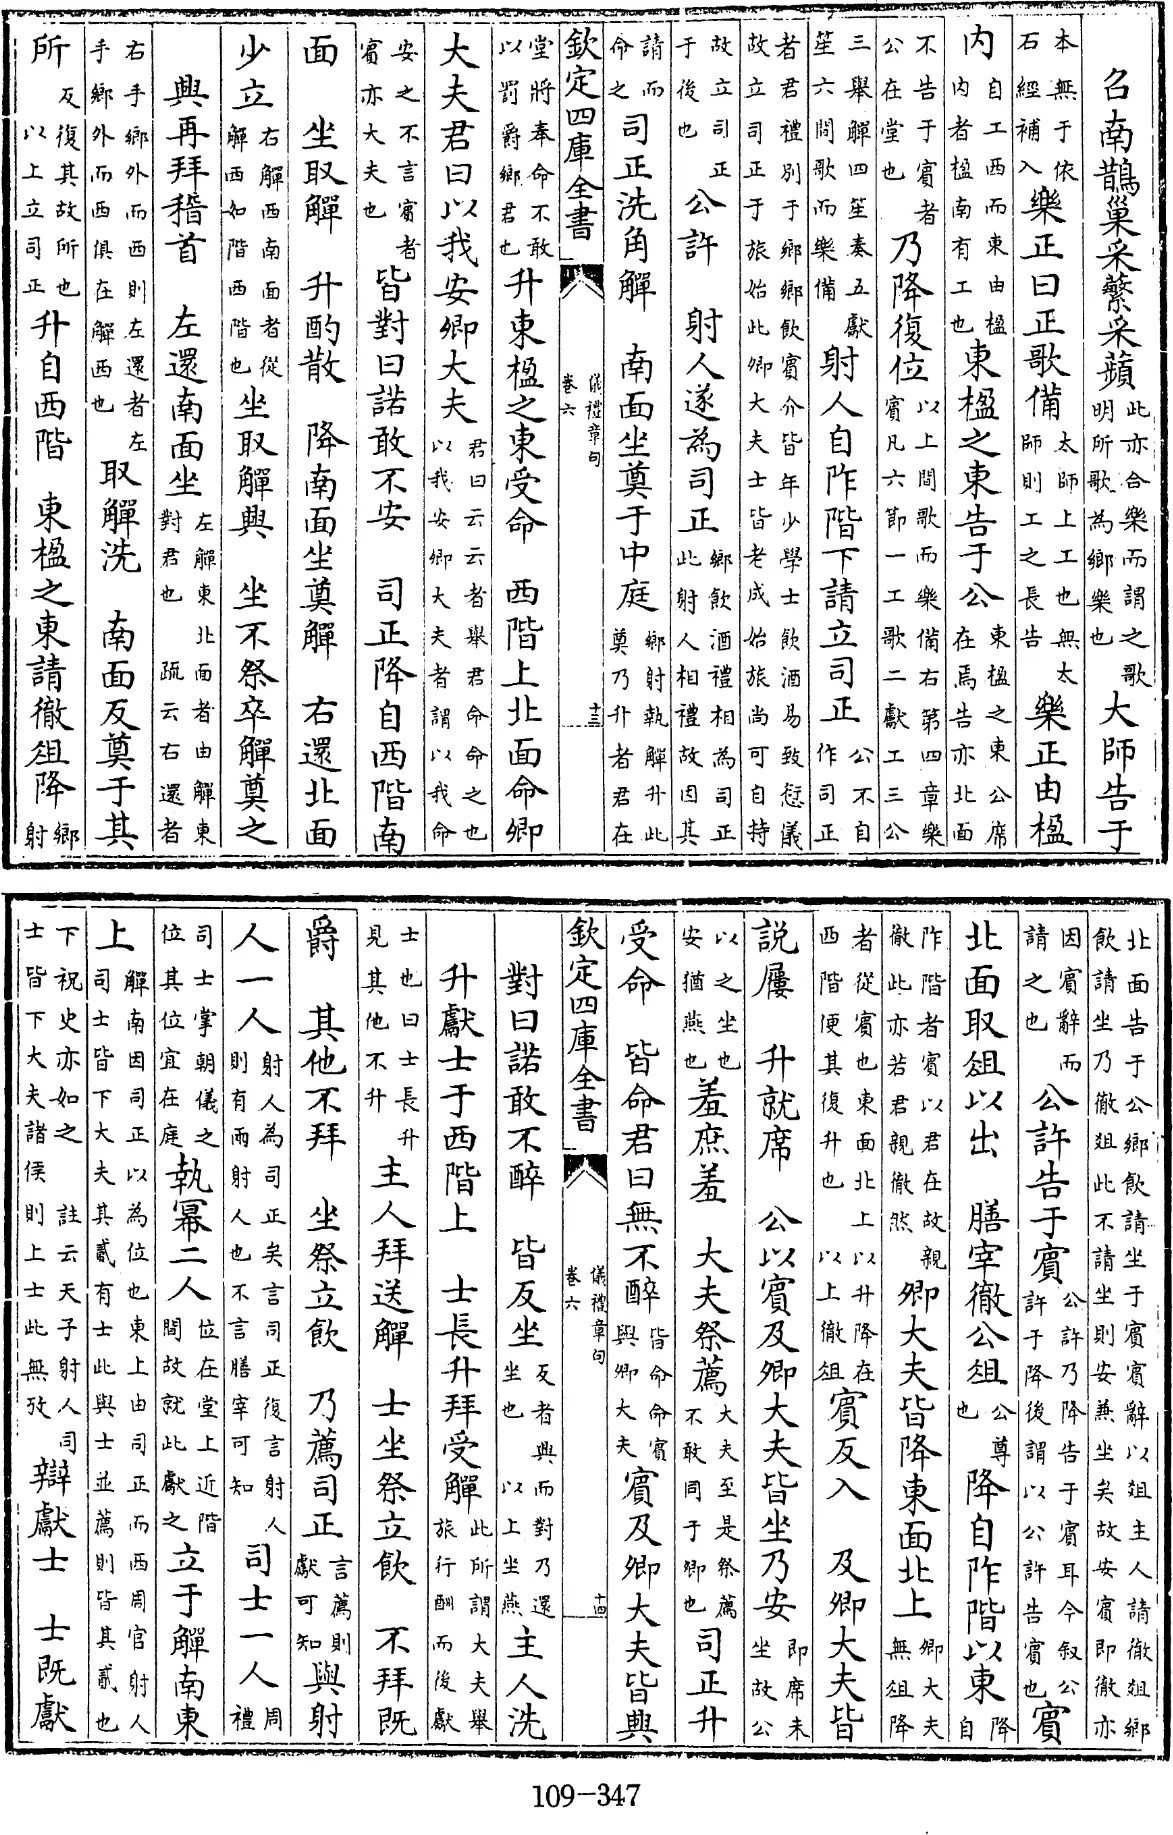 召南鵲巢采蘩采蘋此亦合樂而謂之歌明所歌為鄉樂也 大師告于
本無于依石經補入樂正曰正歌備太師上工也無太師則工之長告 樂正由楹
内自工西而東由楹内者楹南有工也東楹之東告于公東楹之東公席在焉告亦北面
不告于賓者公在堂也乃降復位以上間歌而樂備右第四章樂賓凡六節一工歌二獻工三公
三舉觶四笙奏五獻笙六間歌而樂備 射人自阼階下請立司正公不自作司正
者君禮別于鄉鄉飲賓介皆年少學士飲酒易致愆儀故立司正于旅始此卿大夫士皆老成始旅尚可自持
故立司正于後也公許 射人遂為司正鄉飲酒禮相為司正此射人相禮故因其
請而命之司正洗角觶 南面坐奠于中庭鄉射執觶升此奠乃升者君在
欽定四庫全書 儀禮章句 卷六 十三
堂將奉命不敢以罰爵鄉君也升東楹之東受命 西階上北面命卿
大夫君曰以我安卿大夫君曰云云者舉君命命之也以我安卿大夫者謂以我命
安之不言賓者賓亦大夫也 皆對曰諾敢不安 司正降自西階南
面 坐取觶 升酌散 降南面坐奠觶 右還北面
少立右觶西南面者從觶西如階西階也坐取觶興 坐不祭卒觶奠之
興再拜稽首 左還南面坐左觶東北面者由觶東對君也 疏云右還者
右手鄉外而西則左還者左手鄉外而西俱在觶西也 取觶洗 南面反奠于其
所反復其故所也以上立司正升自西階 東楹之東請徹俎降鄉射
北面告于公鄉飲請坐于賓賓辭以俎主人請徹俎鄉飲請坐乃徹俎此不請坐則安兼坐矣故安賓即徹亦
因賓辭而請之也 公許告于賓公許乃降告于賓耳今叙公許于降後謂以公許告賓也 賓
北面取俎以出 膳宰徹公俎公尊也 降自阼階以東降自
阼階者賓以君在故親徹此亦若君親徹然 卿大夫皆降東面北上卿大夫無俎降
者從賓也東面北上以升降在西階便其復升也 以上徹俎賓反入 及卿大夫皆
説屨 升就席 公以賓及卿大夫皆坐乃安即席未坐故公
以之坐也安猶燕也羞庶羞 大夫祭薦大夫至是祭薦不敢同于卿也 司正升
受命 皆命君曰無不醉皆命命賓與卿大夫賓及卿大夫皆興
欽定四庫全書 儀禮章句 卷六 十四
對曰諾敢不醉 皆反坐反者興而對乃還坐也 以上坐燕主人洗
升獻士于西階上 士長升拜受觶此所謂大夫舉旅行酬而後獻
士也曰士長升見其他不升 主人拜送觶 士坐祭立飲 不拜既
爵 其他不拜 坐祭立飲 乃薦司正言薦則獻可知與射
人一人射人為司正矣言司正復言射人則有兩射人也不言膳宰可知 司士一人周禮
司士掌朝儀之位其位宜在庭執冪二人位在堂上近階間故就此獻之立于觶南東
上觶南因司正以為位也東上由司正而西周官射人司士皆下大夫其貳有士此與士並薦則皆其貳也
下祝史亦如之 註云天子射人司士皆下大夫諸侯則上士此無攷 辯獻士 士既獻
109-347